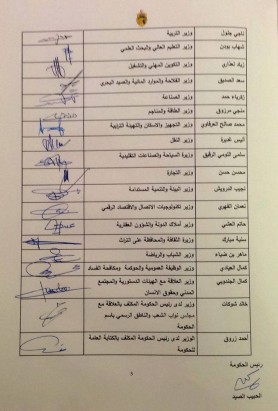 ناجي جلول وزير التربية
شهاب بودن وزير التعليم العالي والبحث العلمي
زياد لعذاري وزير التكوين المهني والتشغيل
سعد الصديق وزير الفلاحة والموارد المائية والصيد البحري
زكرياء حمد وزير الصناعة
منجي مرزوق وزير الطاقة والمناجم
محمد صالح العرفاوي وزير التجهيز والإسكان والتهيئة الترابية
أنيس غديرة وزير النقل
سلمى اللومي الرقيق وزيرة السياحة والصناعات التقليدية
محسن حسن وزير التجارة
نجيب الدرويش وزير البيئة والتنمية المستدامة
نعمان الفهري وزير تكنولوجيات الاتصال والاقتصاد الرقمي
حاتم العشي وزير أملاك الدولة والشؤون العقارية
سنية مبارك وزيرة الثقافة والمحافظة على التراث
ماهر بن ضياء وزير الشباب والرياضة
كمال العيادي وزير الوظيفة العمومية والحوكمة ومكافحة الفساد
كمال الجندوبي وزير العلاقة مع الهيئات الدستورية والمجتمع
المدني وحقوق الإنسان
خالد شوكات وزير لدى رئيس الحكومة المكلف بالعلاقة مع
مجلس نواب الشعب والناطق الرسمي باسم
الحكومة
أحمد زروق الوزير لدى رئيس الحكومة المكلف بالكتابة العامة
للحكومة
رئيس الحكومة
الحبيب الصيد